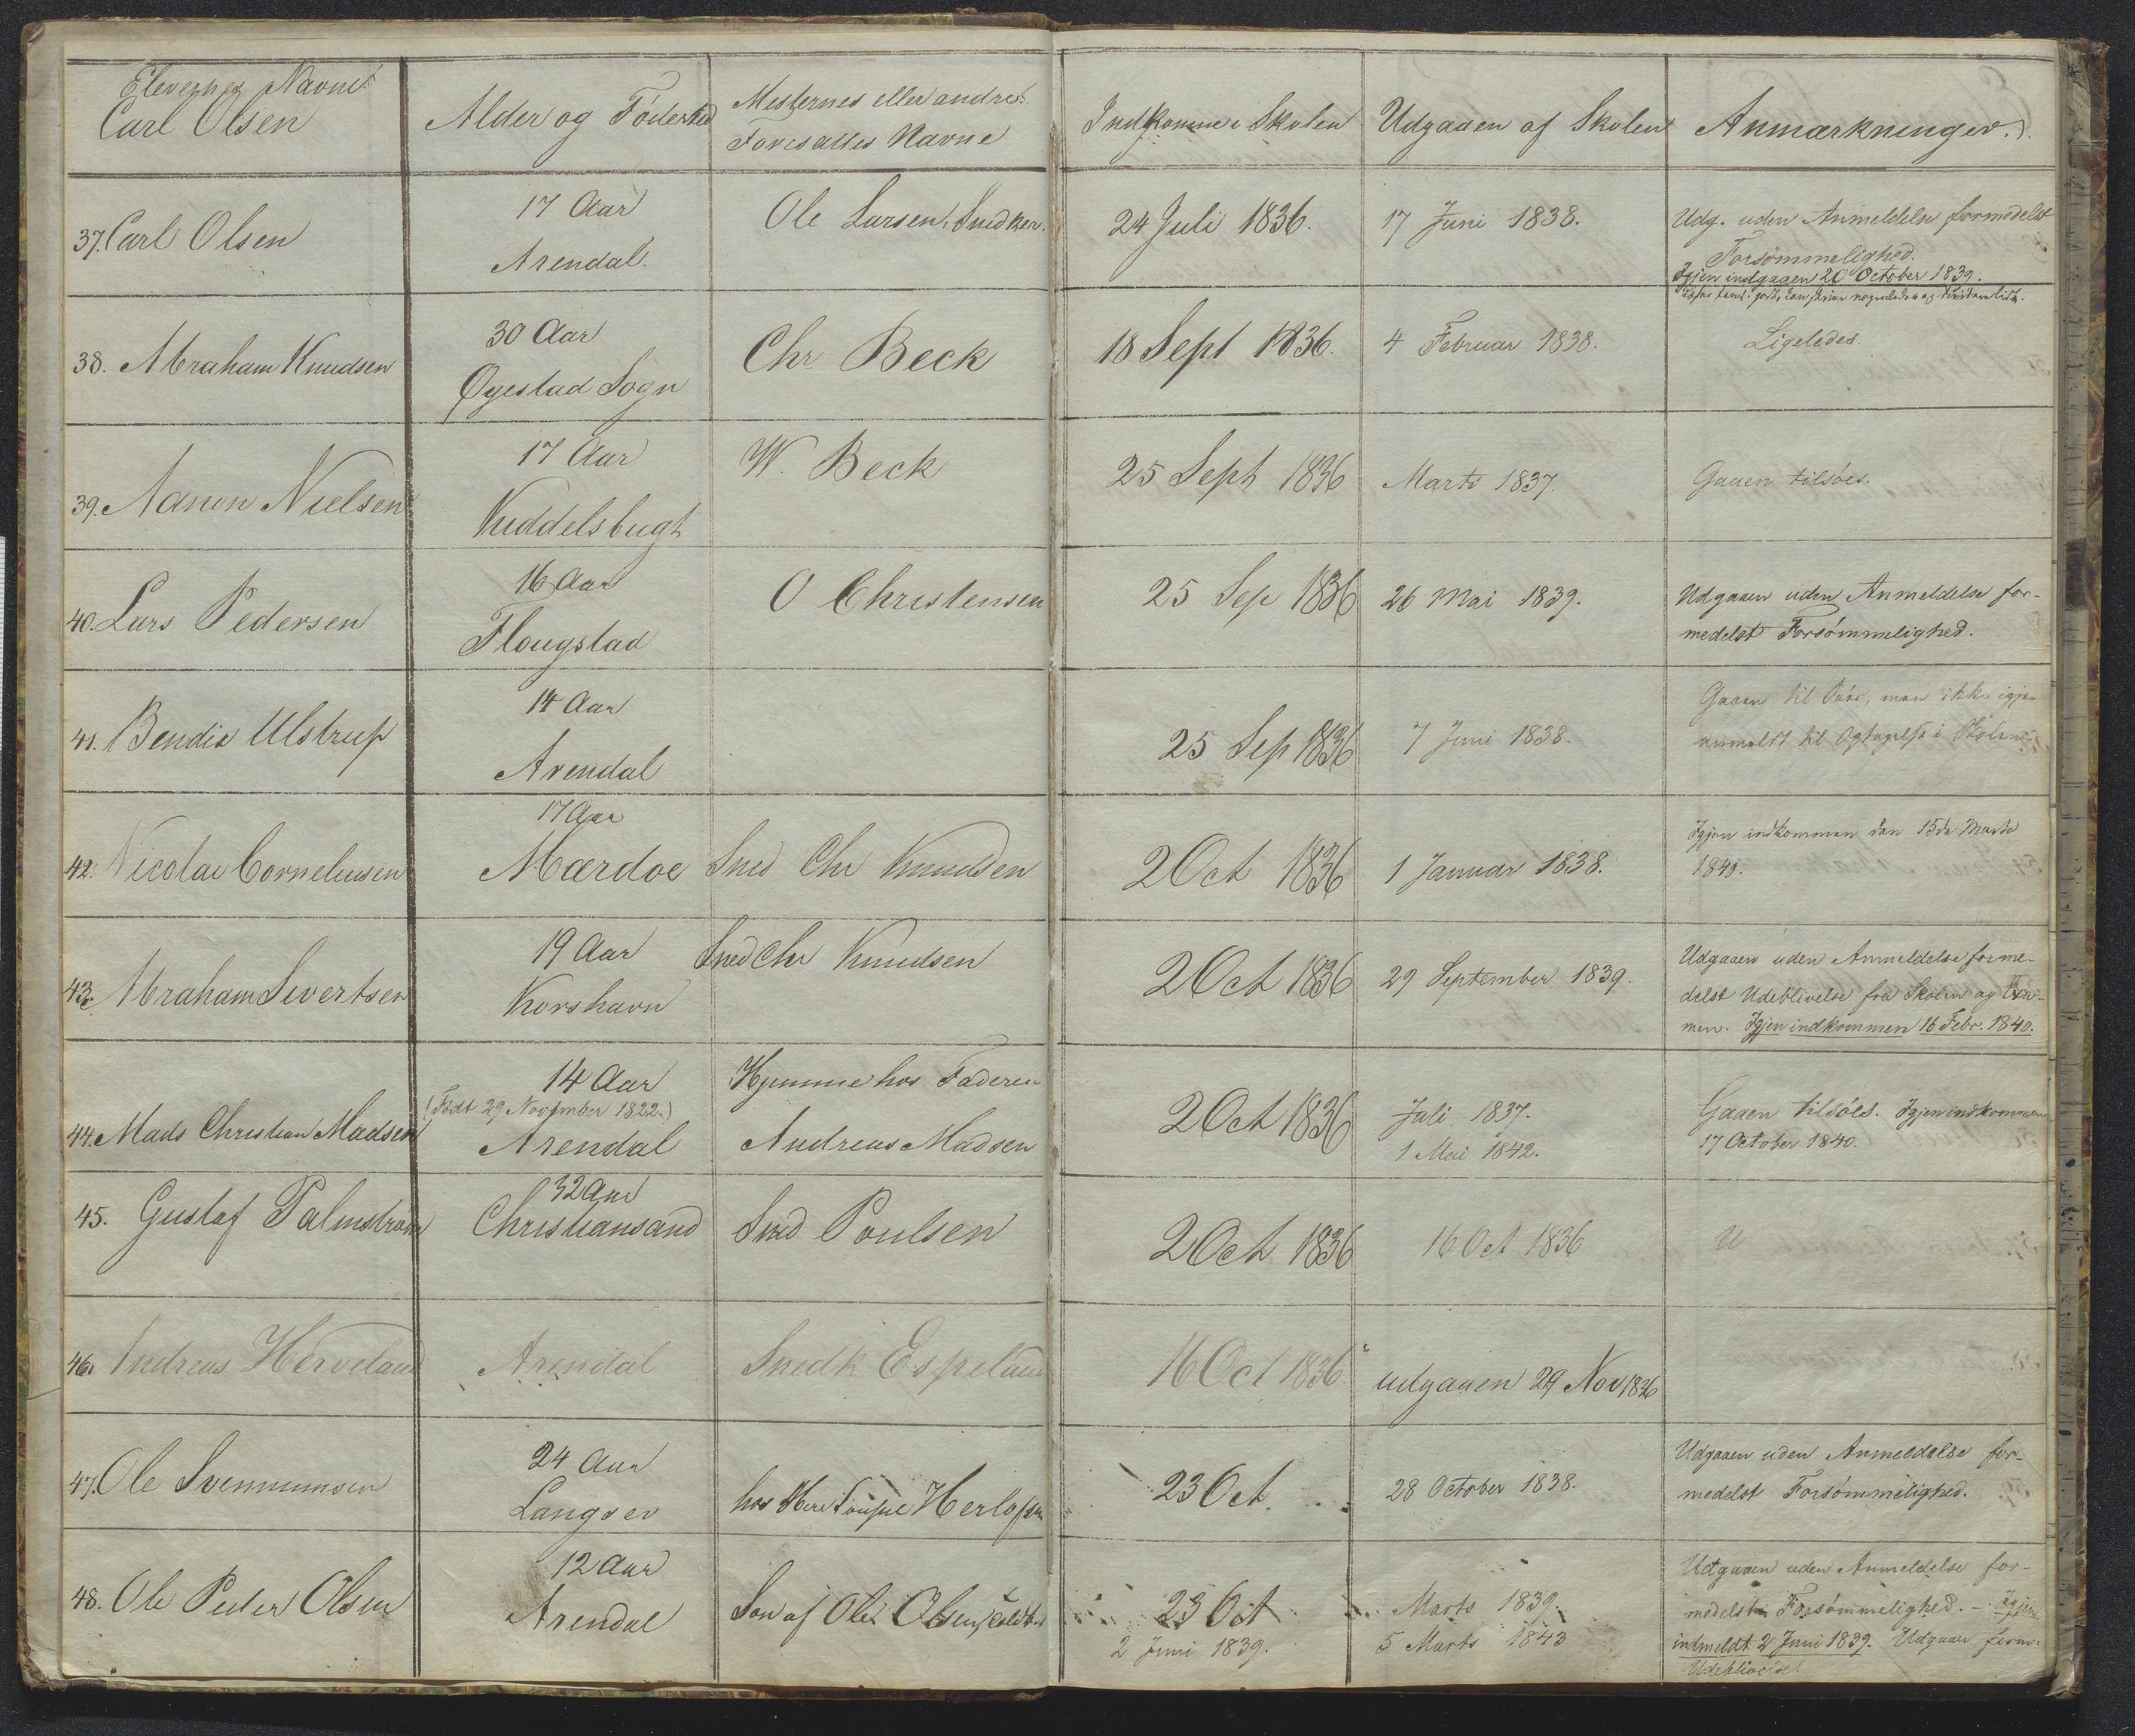 Elevernes Navne
Carl Olsen
Alder og Födested
Mesternes eller andre
Foresattes Navne
Indkomne i Skolen
Udgaaen af Skolen
Anmærkninger.
37. Carl Olsen
17 Aar
Arendal.
Ole Larsen, Snedker.
24 Juli 1836.
17 Juni 1838.
Udg. uden Anmeldelse formedelst
Forsømmelighed.
Igjen indgaaen 20 October 1839.
38. Abraham Knudsen
30 Aar
Øyestad Sogn
Chr Beck
18 Sept 1836.
4 Februar 1838.
Ligeledes.
39. Aanon Nielsen
17 Aar
Kiddelsbugt
W. Beck
25 Sept 1836
Marts 1837.
Gaaen tilsöes.
40. Lars Pedersen
16 Aar
Flougstad
O Christensen
25 Sep 1836
26 Mai 1839.
Udgaaen uden Anmeldelse for-
medelst Forsømmelighed.
41. Bendix Ulstrup
14 Aar
Arendal
25 Sep 1836
7 Juni 1838.
Gaaen til Söes, men ikke igjen
anmeldt til Optagelse i Skolen
42. Nicolai Corneliusen
17 Aar
Mærdoe
Sned Chr Knudsen
2 Oct 1836
1 Januar 1838.
Igjen indkommen den 15de Marts
1840.
43. Abraham Sivertsen
19 Aar
Korshavn
Sned Chr Knudsen
2 Oct 1836
29 September 1839.
Udgaaen uden Anmeldelse forme-
delst Udeblivelse fra Skolen og Exa-
men. Igjen indkommen 16 Febr. 1840.
44. Mads Christian Madsen
14 Aar
(Födt 29 November 1822.)
Arendal
Hjemme hos Faderen
Andreas Madsen
2 Oct 1836
Juli 1837.
1 Mai 1842.
Gaaen tilsöes. Igjen indkommen
17 October 1840.
45. Gustaf Palmstrøm
32 Aar
Christiansand
Sned Poulsen
2 Oct 1836
16 Oct 1836
U
46. Andreas Herveland
Arendal
Snedk Espeland
16 Oct 1836.
udgaaen 29 Nov 1836
47. Ole Svennumsen
24 Aar
Langsev
hos Herr Herlofsen
23 Oct.
28 October 1838.
Udgaaen uden Anmeldelse for-
medelst Forsømmelighed.
48. Ole Peder Olsen
12 Aar
Arendal
Søn af Ole Olsen
23 Oct
2 Juni 1839.
Marts 1839.
5 Marts 1843
Udgaaen uden Anmeldelse for-
medelst Forsømmelighed. - Igjen
indmeldt 2 Juni 1839. Udgaaen form.
Udeblivelse.